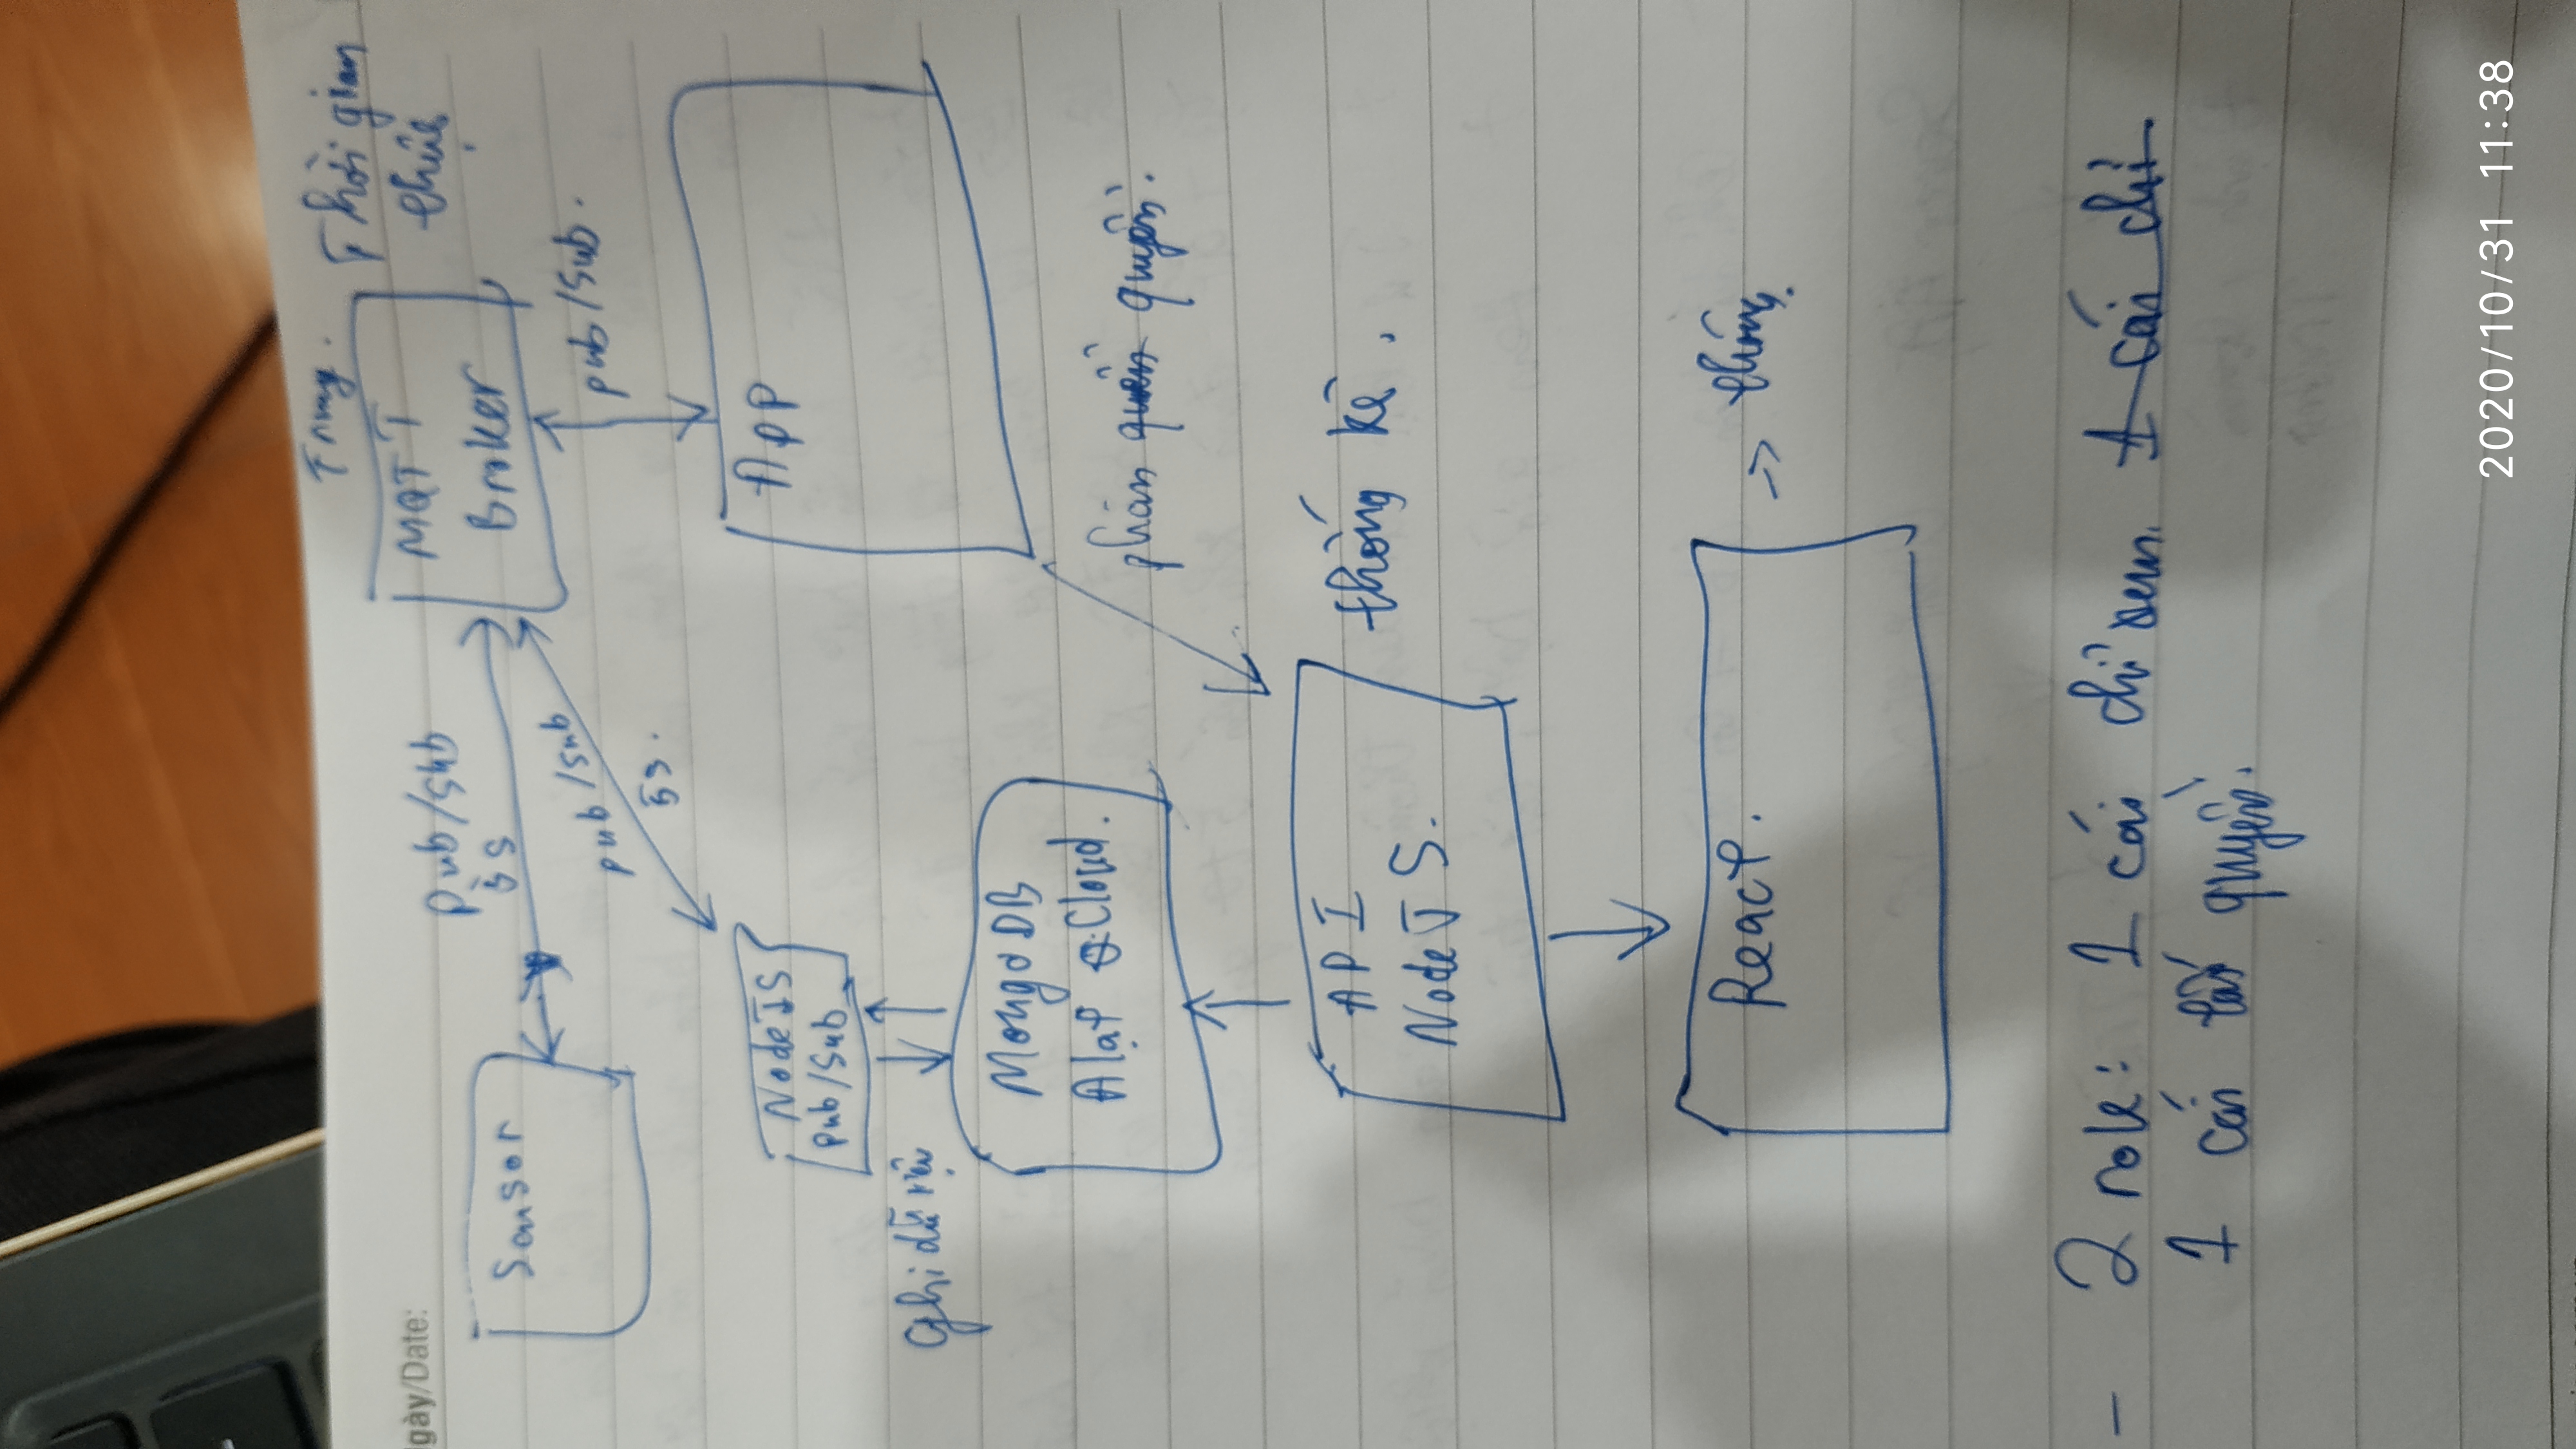 Trung.
Thời gian
thực
gày/Date:
MQTT
Broker
Pub/sub
5s
Sensor
pub/sub
5s.
pub/sub.
NodeJS
Pub/Sub
App
Ghi dữ liệu
MongoDB
Cloud.
phân quyền.
API
NodeJS.
thống kê.
React.
=> thống
- 2 role: 1 cái chỉ xem. 1 cái chỉ
1 cái tất quyền.
2020/10/31 11:38